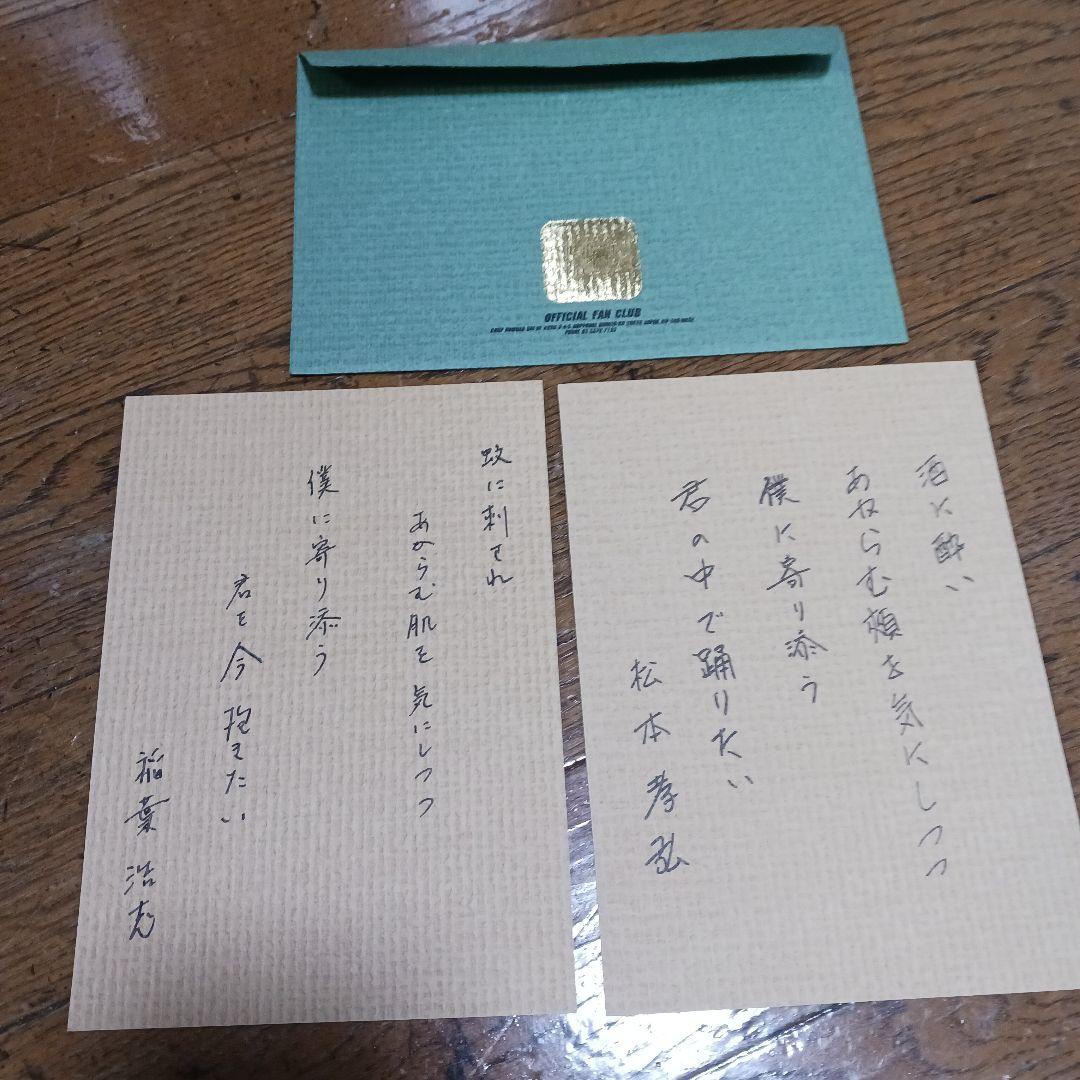 OFFICIAL FAN CLUB
酒に酔い
あからむ頬を気にしつつ
僕に寄り添う
君の中で踊りたい
松本孝弘
蚊に刺され
あからむ肌を気にしつつ
僕に寄り添う
君を今抱きたい
稲葉浩志